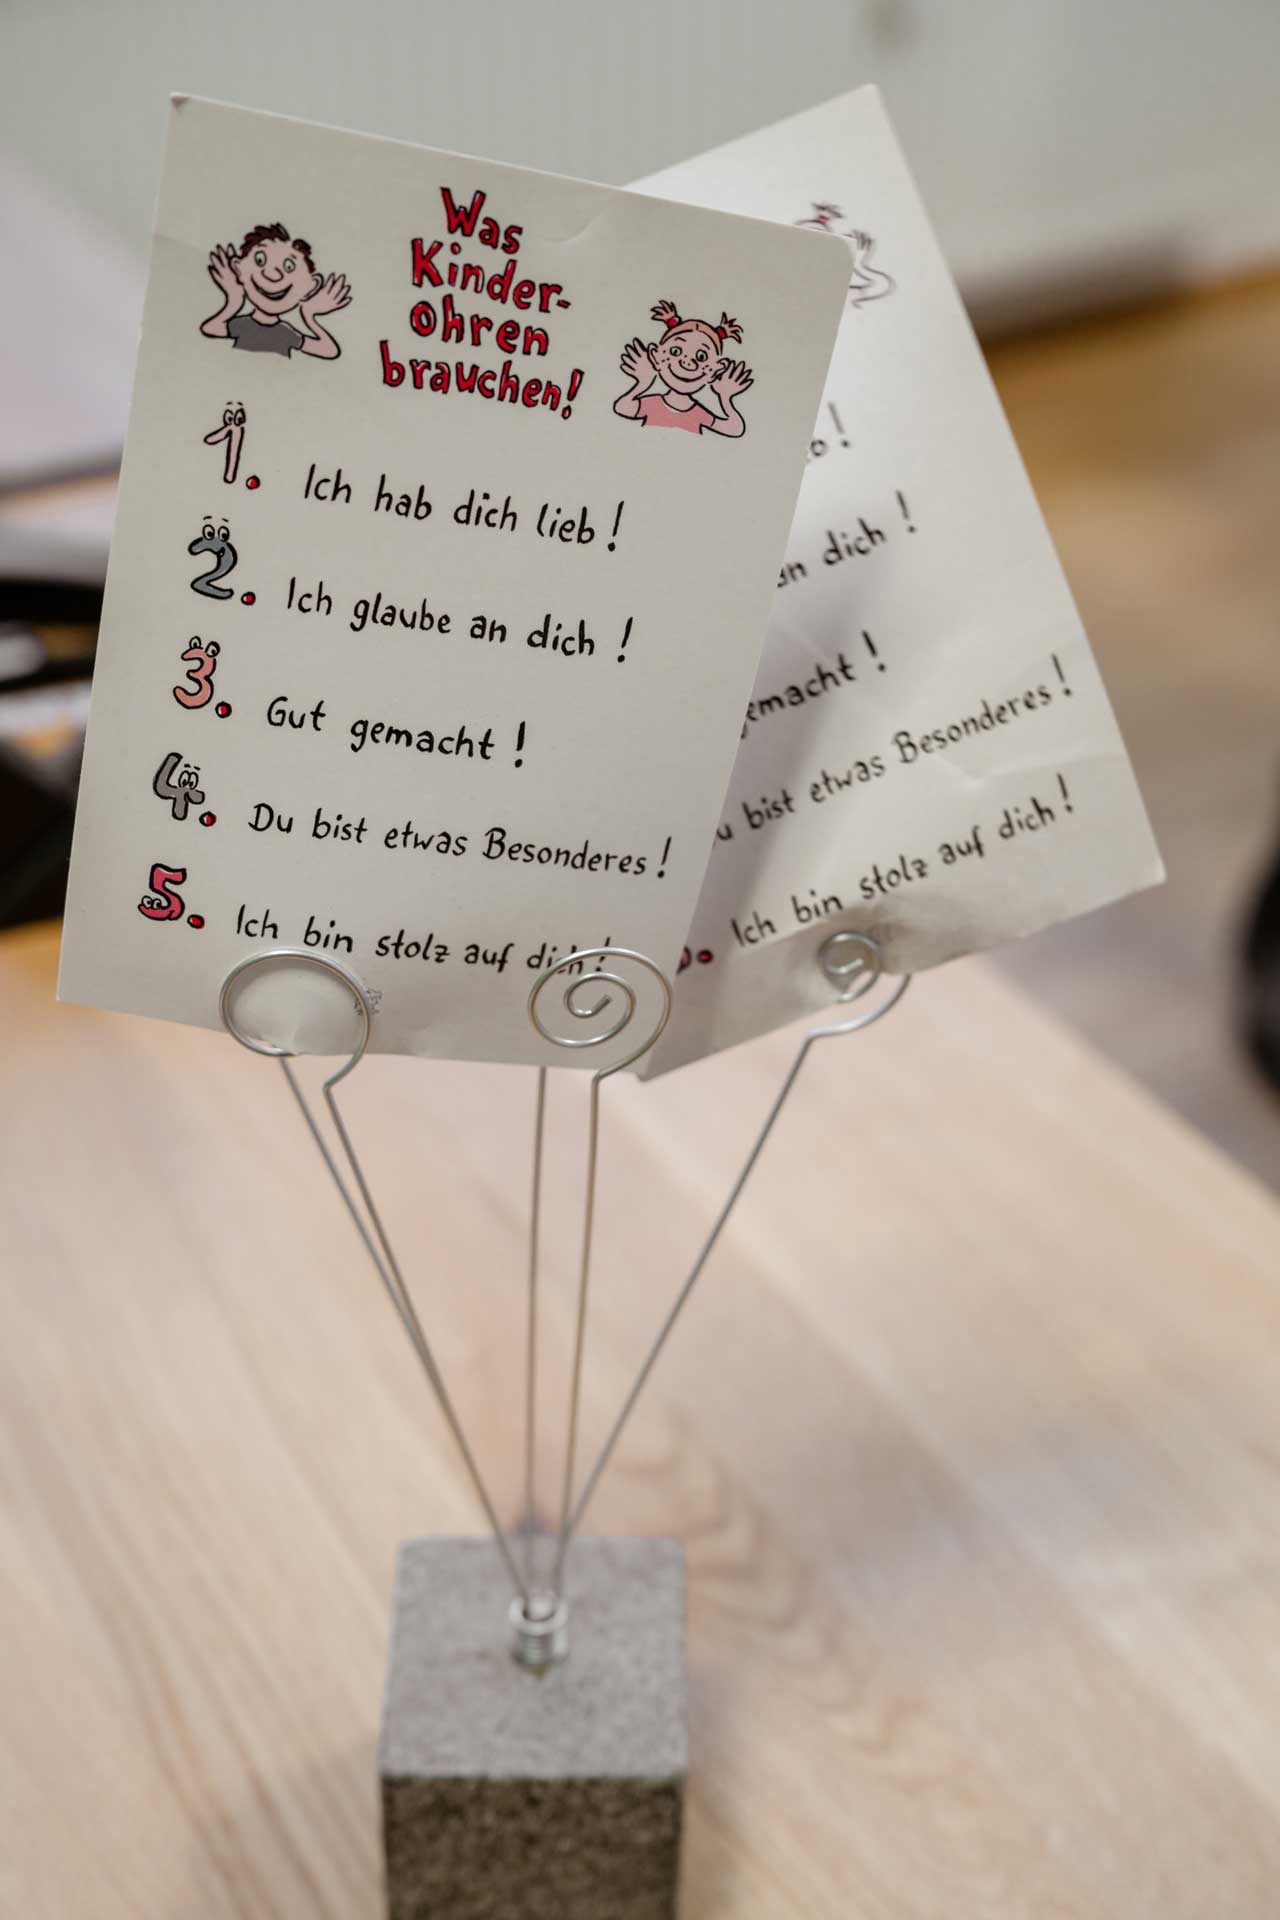 Was
Kinder-
ohren
brauchen!
1. Ich hab dich lieb!
2. Ich glaube an dich!
3. Gut gemacht!
4. Du bist etwas Besonderes!
5. Ich bin stolz auf dich!
dich!
bist etwas Besonderes!
Ich bin stolz auf dich!